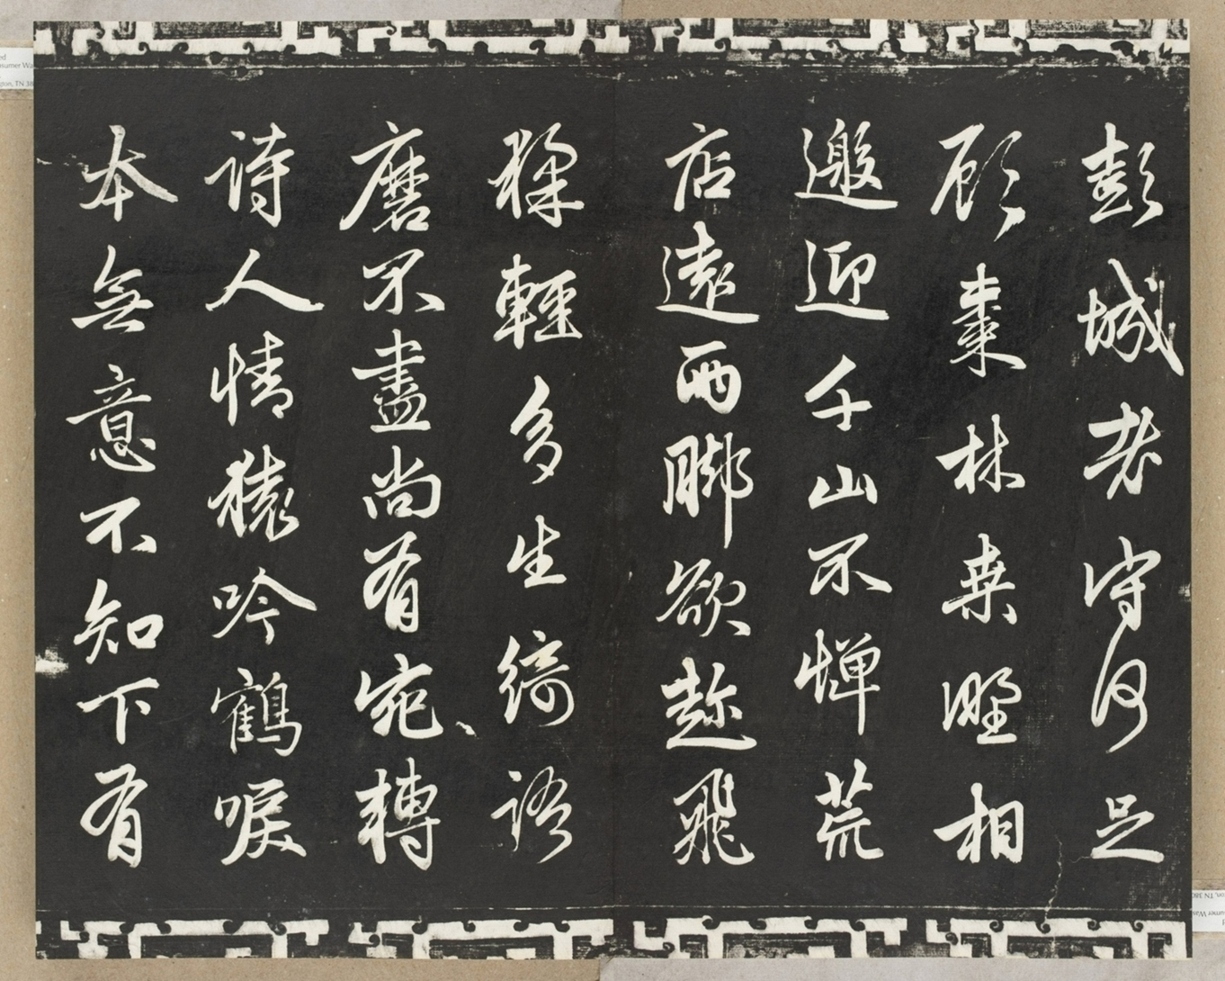 彭城老守何足
顧棗林桑野相
邀迎千山不憚荒
店遠兩脚欲趂飛
猱輕多生綺語
磨不盡尚有宛轉
詩人情猿吟鶴唳
本無意不知下有